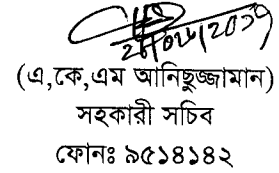 (এ,কে,এম আনিছুজ্জামান)
সহকারী সচিব
ফোনঃ ৯৫১৪১৪২